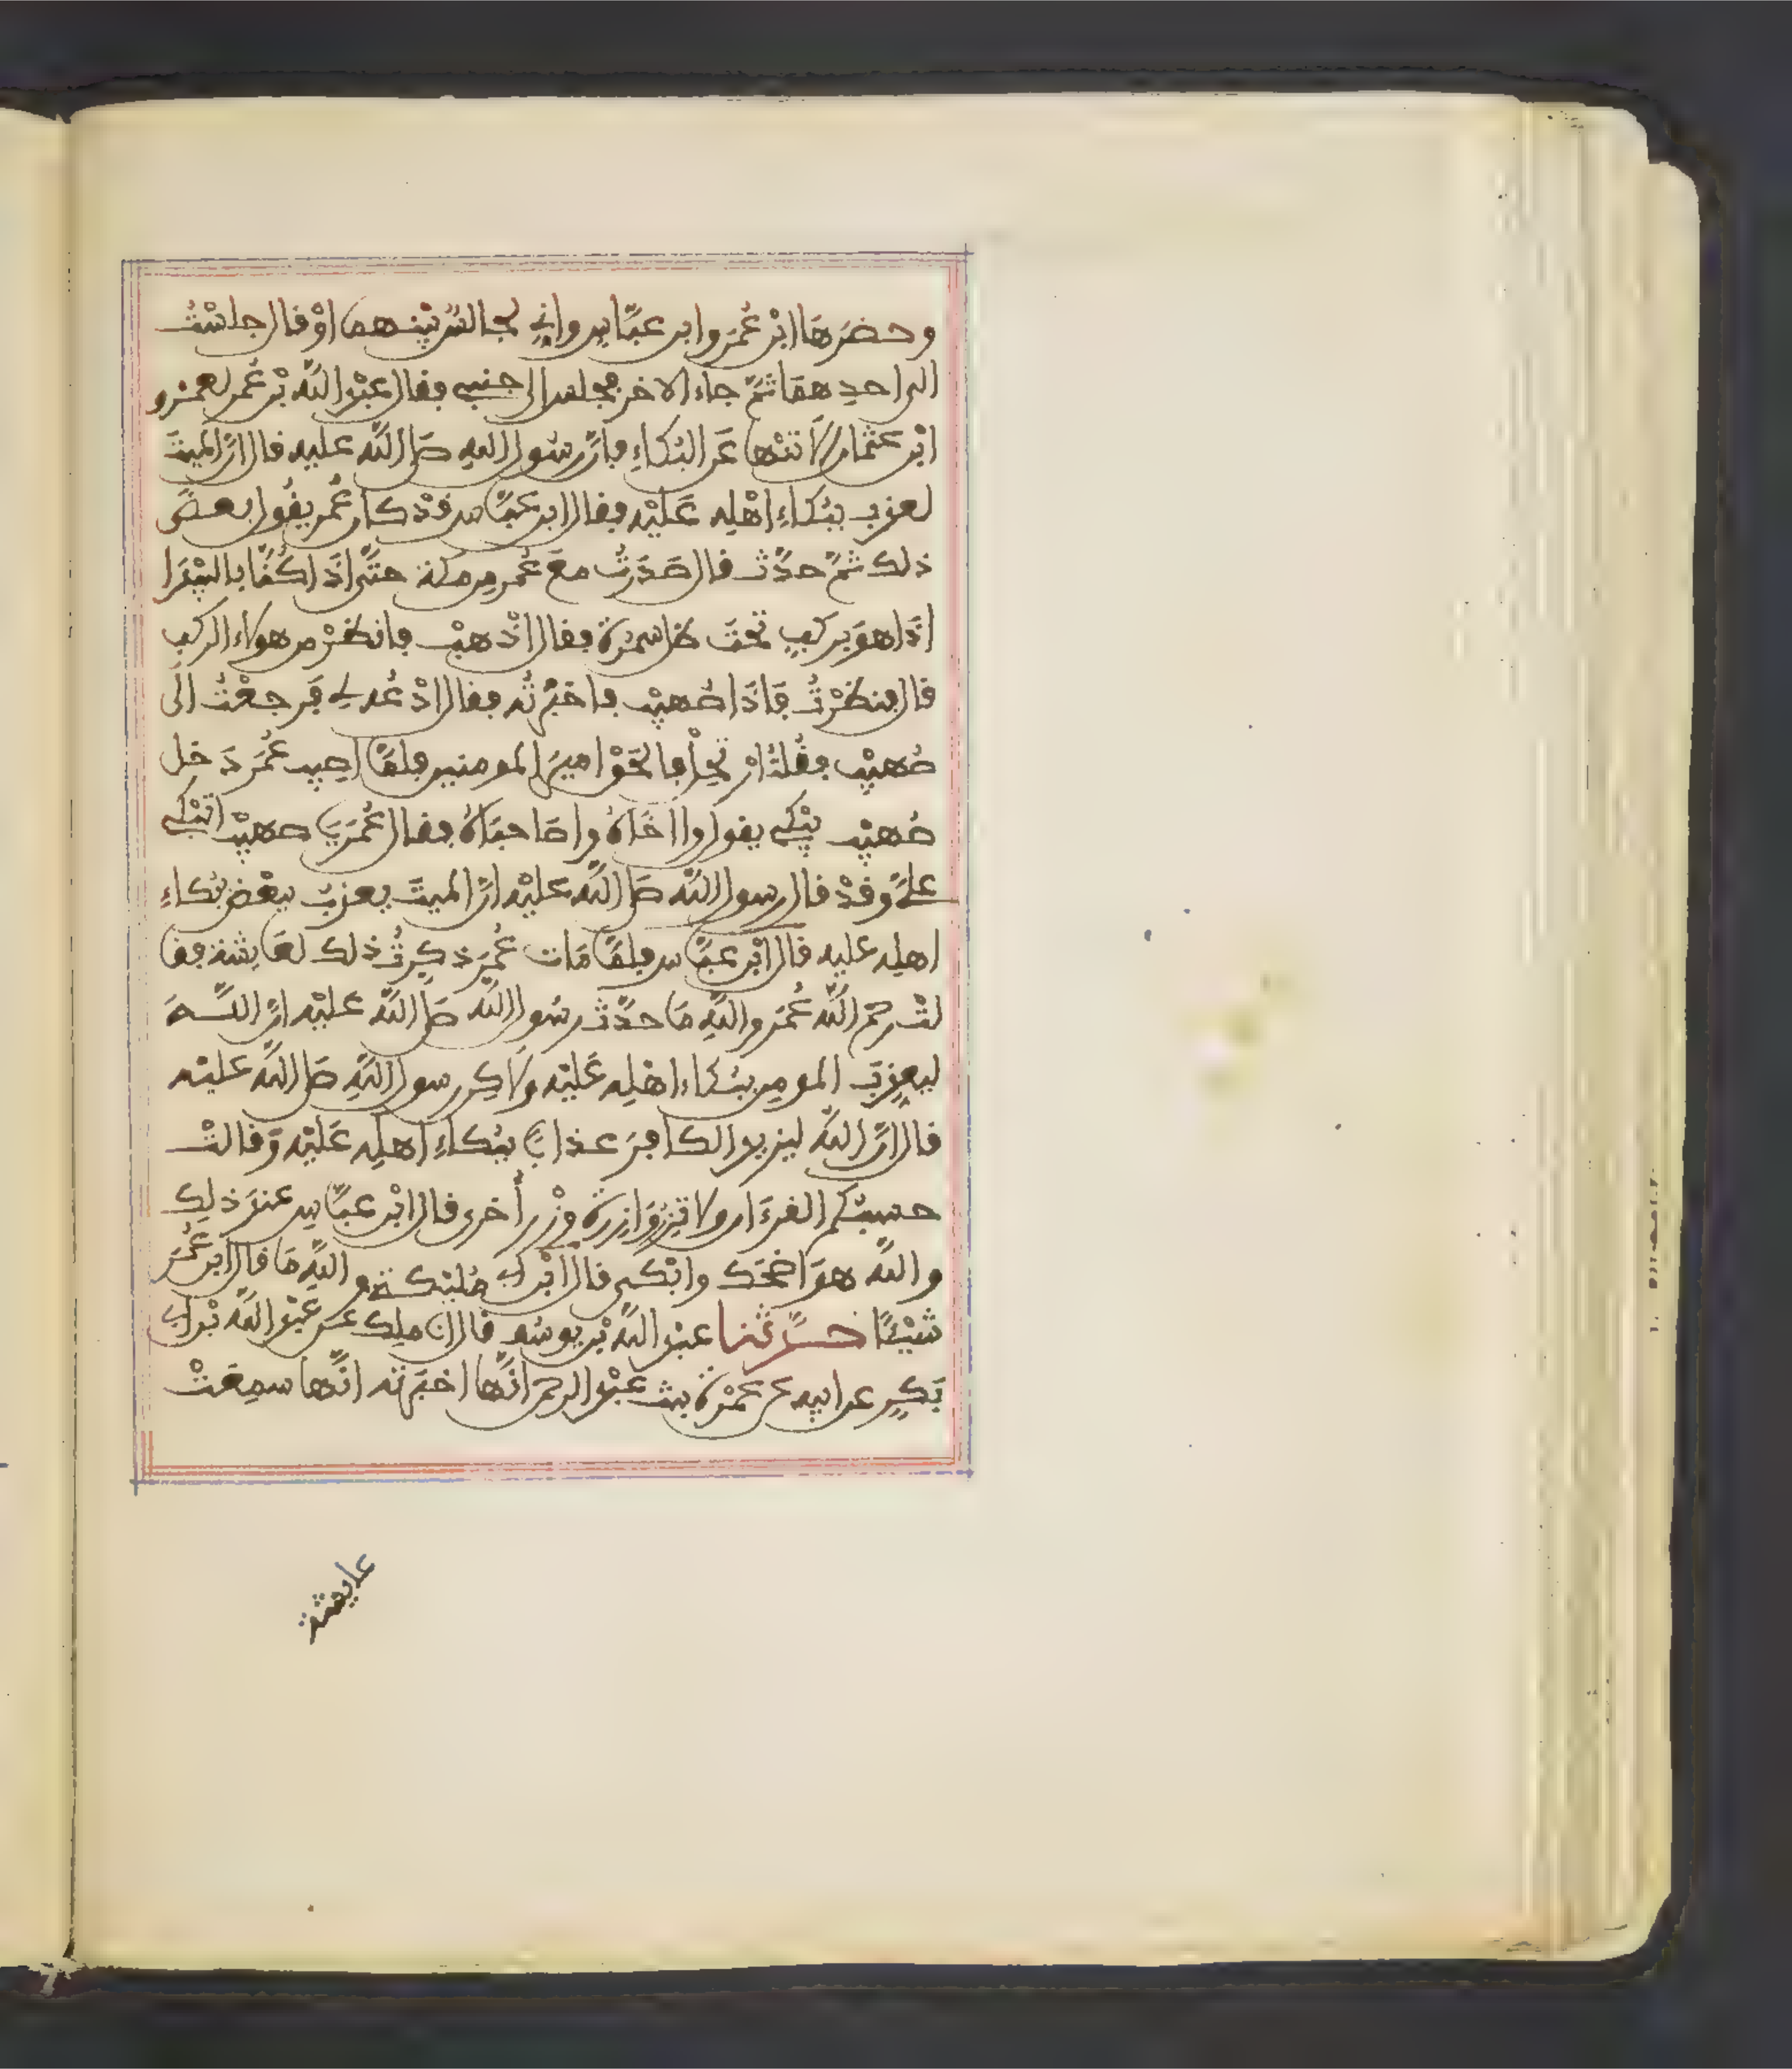 وحضرها ابْن عُمَر وابن عبَّاس واني لجالسٌ بيْنهما اوْ قال جلسْتُ
الى احدهمَا ثمَّ جاء الاخر فجلس الى جنبي فقال عبْد اللَّه بْن عُمر لعمْرو
ابْن عثمان الَا تنْهى عَن البُكاءِ فإنَّ رسُول اللهِ صَلى اللَّه عليه قال انَّ الميتَ
لعذب ببُكاءِ اهْلِه عَليْه فقال ابن عبَّاس قدْ كان عُمر يقُول بعضَ
ذلك ثمَّ حدَّث قال صَدَرْتُ معَ عُمر مِن مكة حتَّى اذَا كُنَّا بالبيْدَا
اذَا هوَ بركبٍ تحْتَ ظل سمُرة فقال اذْهبْ فانظرْ من هولاء الركب
قال فنظرْتُ فَاذَا صُهيْب فاخبرْتُه فقال ادْعُه لي فَرجعْتُ الَى
صُهيْب فقُلتُ ارْتحِلْ فالحَقْ اميرَ المومنين فلمَّا اصِيب عُمَر دَخل
صُهيْب يبْكي يقول وا اخَاهُ وا صَاحبَاهُ فقال عُمَر يَا صهيْب اتبْكي
عليَّ وقدْ قال رسول اللَّه صَلى اللَّه عَليْه انَّ الميتَ يعذب ببعْض بُكاءِ
اهلِه عليه قال ابْن عبَّاس فلمَّا مَات عُمَر ذكرتُ ذلك لعَايشة فقا
لتْ رحم اللَّه عُمَر واللَّهِ مَا حدَّث رسُول اللَّه صَلى اللَّه عليْه انَّ اللَّــهَ
ليعذِبَ المومِن ببُكاء اهْلِه عَليْه ولاكِن رسول اللَّهِ صَلى اللَّه عليْه
قال انَّ اللَّه ليزيد الكافِرَ عذابًا ببُكاءِ اهلِه عَليْه وَقالتْ
حسبُكم القرءَان ولا تزِرُ وَازِرة وِزْر أخرى قال ابْن عبَّاس عندَ ذلِك
واللَّه هوَ اضْحَك وابْكى قال ابْن ابي مُليْكــة واللَّهِ مَا قال ابن عُمَر
شيْئًا حــدَّثنا عبْد اللَّه بْن يوسُف قال انا ملِك عن عبْد اللَّه بْن ابي
بَكرٍ عن ابيِه عن عمْرة بنت عبْد الرحمن انَّها اخبَرتْه انَّها سمِعَتْ
عايشة